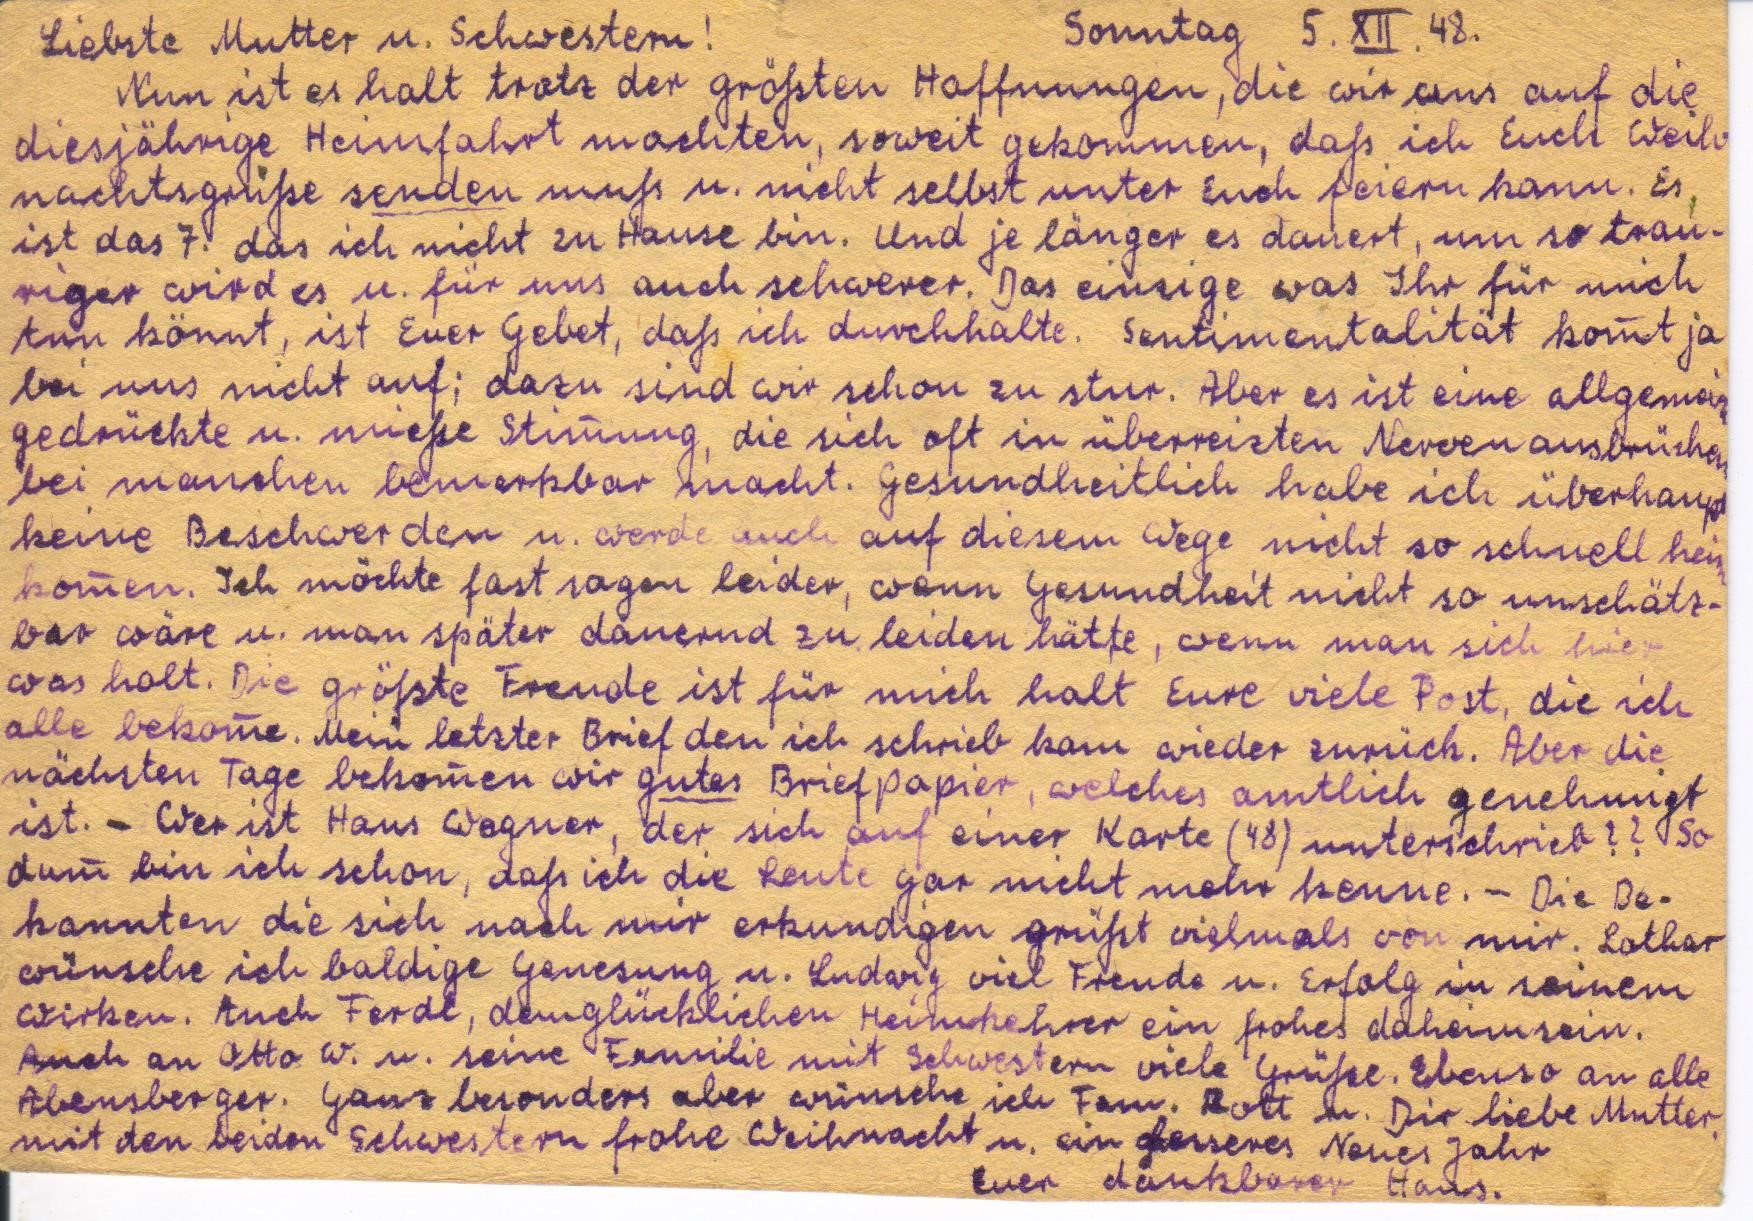 Liebste Mutter u. Schwestern! Sonntag 5. XII. 48.
Nun ist es halt trotz der größten Hoffnungen, die wir uns auf die
diesjährige Heimfahrt machten, soweit gekommen, daß ich Euch Weih
nachtsgrüße senden muß u. nicht selbst unter Euch feiern kann. Es
ist das 7. das ich nicht zu Hause bin. Und je länger es dauert, um so trau-
riger wird es u. für uns auch schwerer. Das einzige was Ihr für mich
tun könnt, ist Euer Gebet, daß ich durchhalte. Sentimentalität kom̅t ja
bei uns nicht auf; dazu sind wir schon zu stur. Aber es ist eine allgemein
gedrückte u. mieße Stim̅ung, die sich oft in überreizten Nervenausbrüchen
bei manchen bemerkbar macht. Gesundheitlich habe ich überhaupt
keine Beschwerden u. werde auch auf diesem Wege nicht so schnell heim
kom̅en. Ich möchte fast sagen leider, wenn Gesundheit nicht so unschätz-
bar wäre u. man später dauernd zu leiden hätte, wenn man sich hier
was holt. Die größte Freude ist für mich halt Eure viele Post, die ich
alle bekom̅e. Mein letzter Brief den ich schrieb kam wieder zurück. Aber die
nächsten Tage bekom̅en wir gutes Briefpapier, welches amtlich genehmigt
ist. – Wer ist Hans Wagner, der sich auf einer Karte (48) unterschrieb?? So
dum̅ bin ich schon, daß ich die Leute gar nicht mehr kenne. – Die Be-
kannten die sich nach mir erkundigen grüßt vielmals von mir. Lothar
wünsche ich baldige Genesung u. Ludwig viel Freude u. Erfolg in seinem
Wirken. Auch Ferdl, dem glücklichen Heimkehrer ein frohes daheimsein.
Auch an Otto W. u. seine Familie mit Schwestern viele Grüße. Ebenso an alle
Abensberger. Ganz besonders aber wünsche ich Fam. Rott u. Dir liebe Mutter,
mit den beiden Schwestern frohe Weihnacht u. ein besseres Neues Jahr
Euer dankbarer Hans.